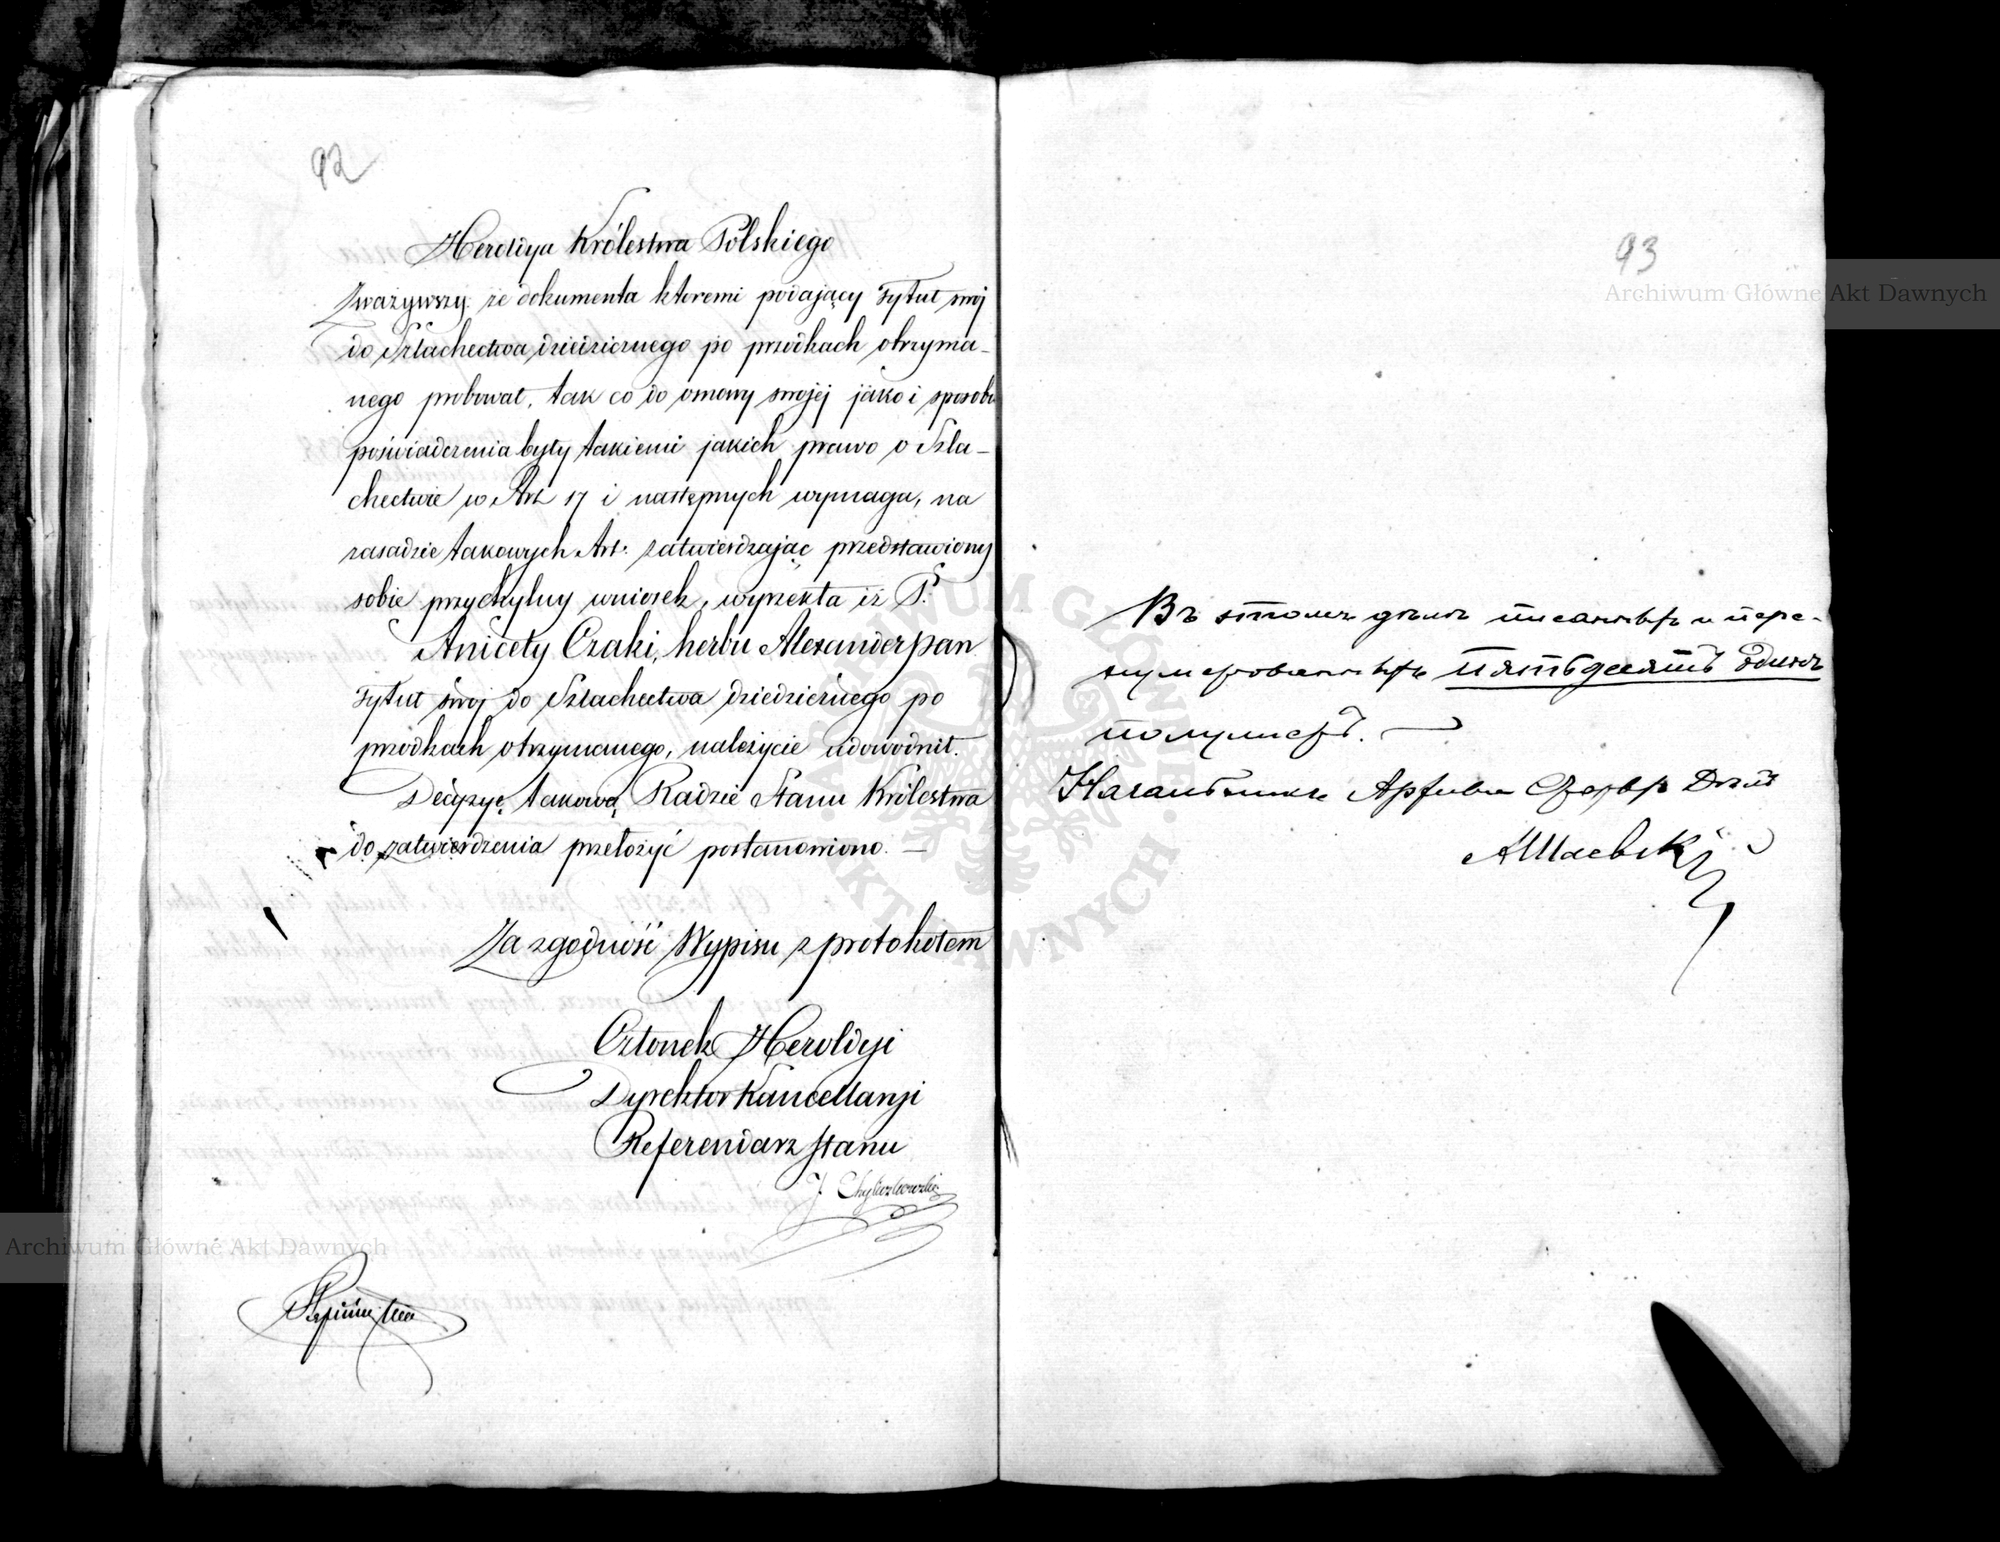 92
Heroldya Królestwa Polskiego
Zważywszy że dokumenta któremi podający Tytuł swój
do Szlachectwa dziedzicznego po przodkach otrzyma-
nego probował, tak co do osnowy swojej jako i sposobu
poświadczenia były takiemi jakich prawo o Szla-
chectwie w Art. 17 i następnych wymaga, na
zasadzie takowych Art. zatwierdzając przedstawiony
sobie przychylny wniosek, wyrzekła iż P.
Anicety Czaki, herbu Alexander pan
Tytuł swój do Szlachectwa dziedzicznego po
przodkach otrzymanego, należycie udowodnił.
Decyzyę takową Radzie Stanu Królestwa
do zatwierdzenia przełożyć postanowiono. —
Za zgodność Wypisu z protokołem
Członek Heroldyi
Dyrektor Kancellaryi
Referendarz Stanu
J. Chyliczkowski
93
Въ этомъ дѣлѣ писанныхъ и пере-
нумерованныхъ пятьдесятъ одинъ
полулистъ. —
Начальникъ Архива Старыхъ Дѣлъ
Archiwum Główne Akt Dawnych
Archiwum Główne Akt Dawnych
ARCHIWUM GŁÓWNE AKT DAWNYCH